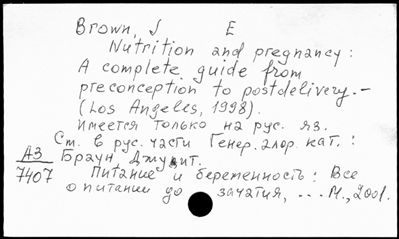 Brown, J E
Nutrition and pregnancy:
A complete guide from
preconception to postdelivery.-
(Los Angeles, 1998).
имеется только на рус. яз.
См. в рус. части Генер. алф. кат.:
АЗ Браун, Джудит.
7407 Питание и беременность: Все
о питании до зачатия, ... М., 2001.